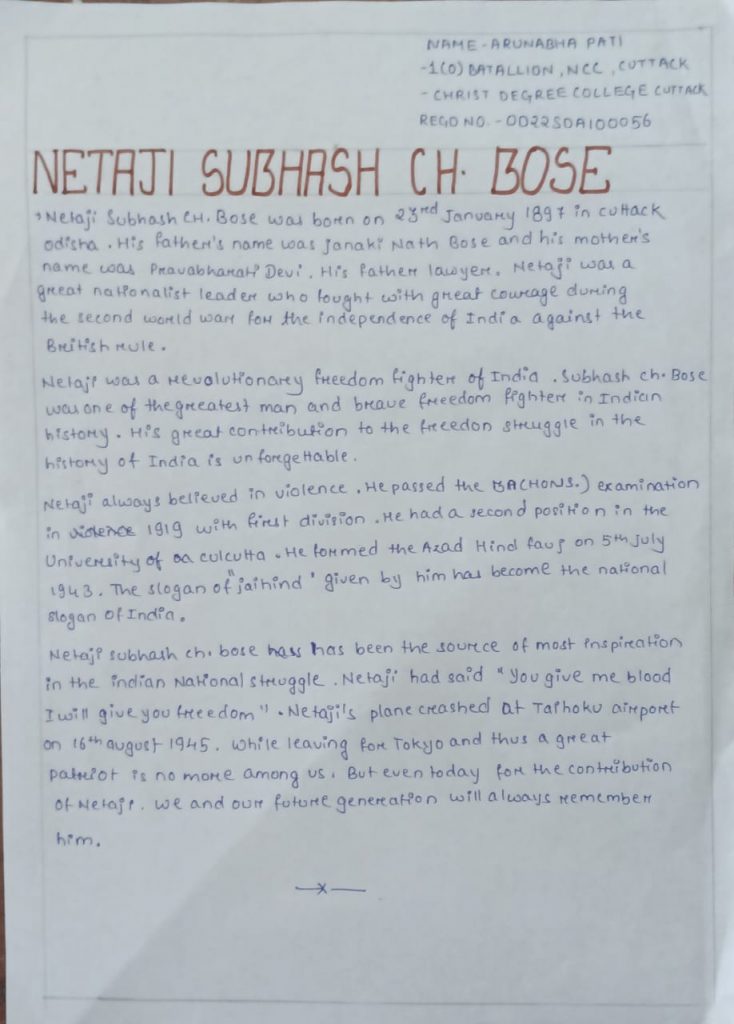 NAME - ARUNABHA PATI
-1(O) BATALLION, NCC, CUTTACK
- CHRIST DEGREE COLLEGE CUTTACK
REGD NO. - OD22SDA100056
NETAJI SUBHASH CH. BOSE
Netaji Subhash CH. Bose was born on 23rd January 1897 in cuttack
odisha. His father's name was Janaki Nath Bose and his mother's
name was Pravabharati Devi. His father lawyer. Netaji was a
great nationalist leader who fought with great courage during
the second world warr for the independence of India against the
British rule.
Netaji was a revolutionary freedom fighter of India. Subhash ch. Bose
was one of the greatest man and brave freedom fighter in Indian
history. His great contribution to the freedon struggle in the
history of India is unforgettable.
Netaji always believed in violence. He passed the BA(HONS.) examination
in violence 1919 with first division. He had a second position in the
University of ca culcutta. He formed the Azad Hind fauj on 5th July
1943. The slogan of "jaihind" given by him has become the national
slogan of India.
Netaji subhash ch. bose has has been the source of most inspiration
in the indian National struggle. Netaji had said "You give me blood
I will give you freedom". Netaji's plane crashed at Taihoku airport
on 16th august 1945. While leaving for Tokyo and thus a great
patriot is no more among us. But even today for the contribution
of Netaji. we and our future generation will always remember
him.